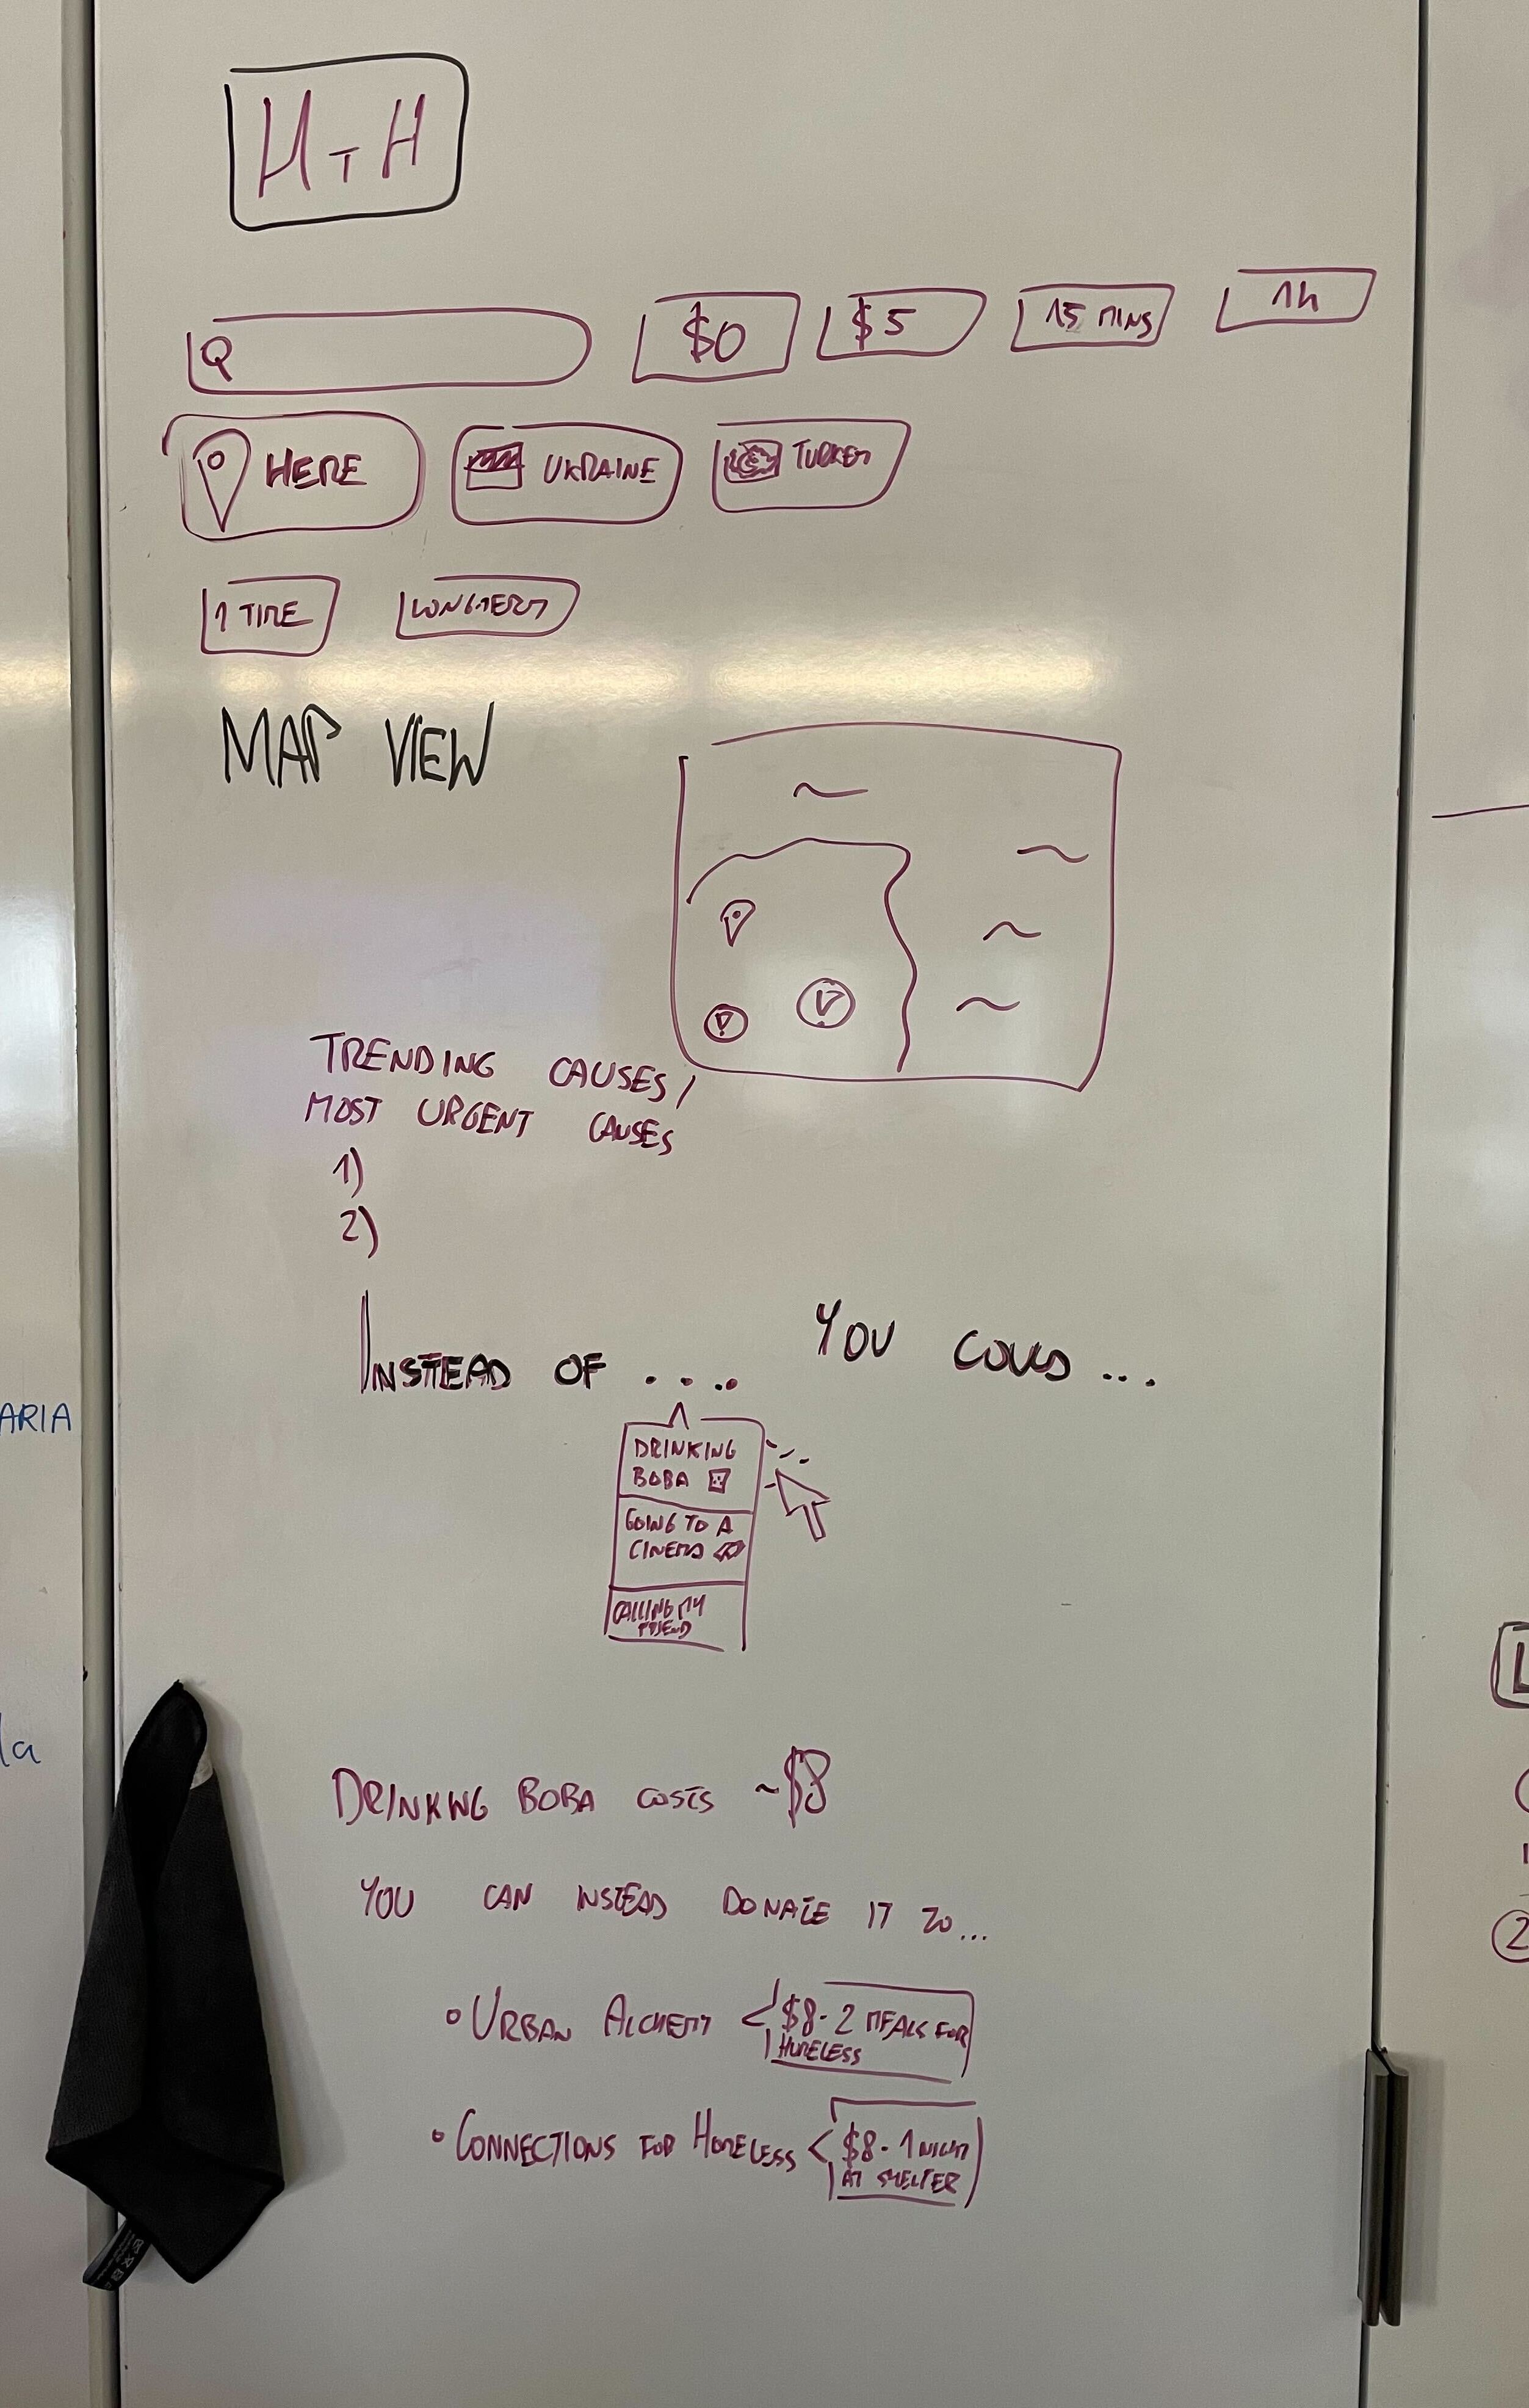 HTH
$0
$5
15 MINS
1h
HERE
UKRAINE
TURKEY
1 TIME
LONG-TERM
MAP VIEW
TRENDING CAUSES/
MOST URGENT CAUSES
1)
2)
INSTEAD OF ....
YOU COULD ...
DRINKING
BOBA
GOING TO A
CINEMA
CALLING MY
FRIEND
DRINKING BOBA COSTS ~$8
YOU CAN INSTEAD DONATE IT TO...
• URBAN ALCHEMY
$8 - 2 MEALS FOR
HOMELESS
• CONNECTIONS FOR HOMELESS
$8 - 1 NIGHT
AT SHELTER
ARIA
la
L
2